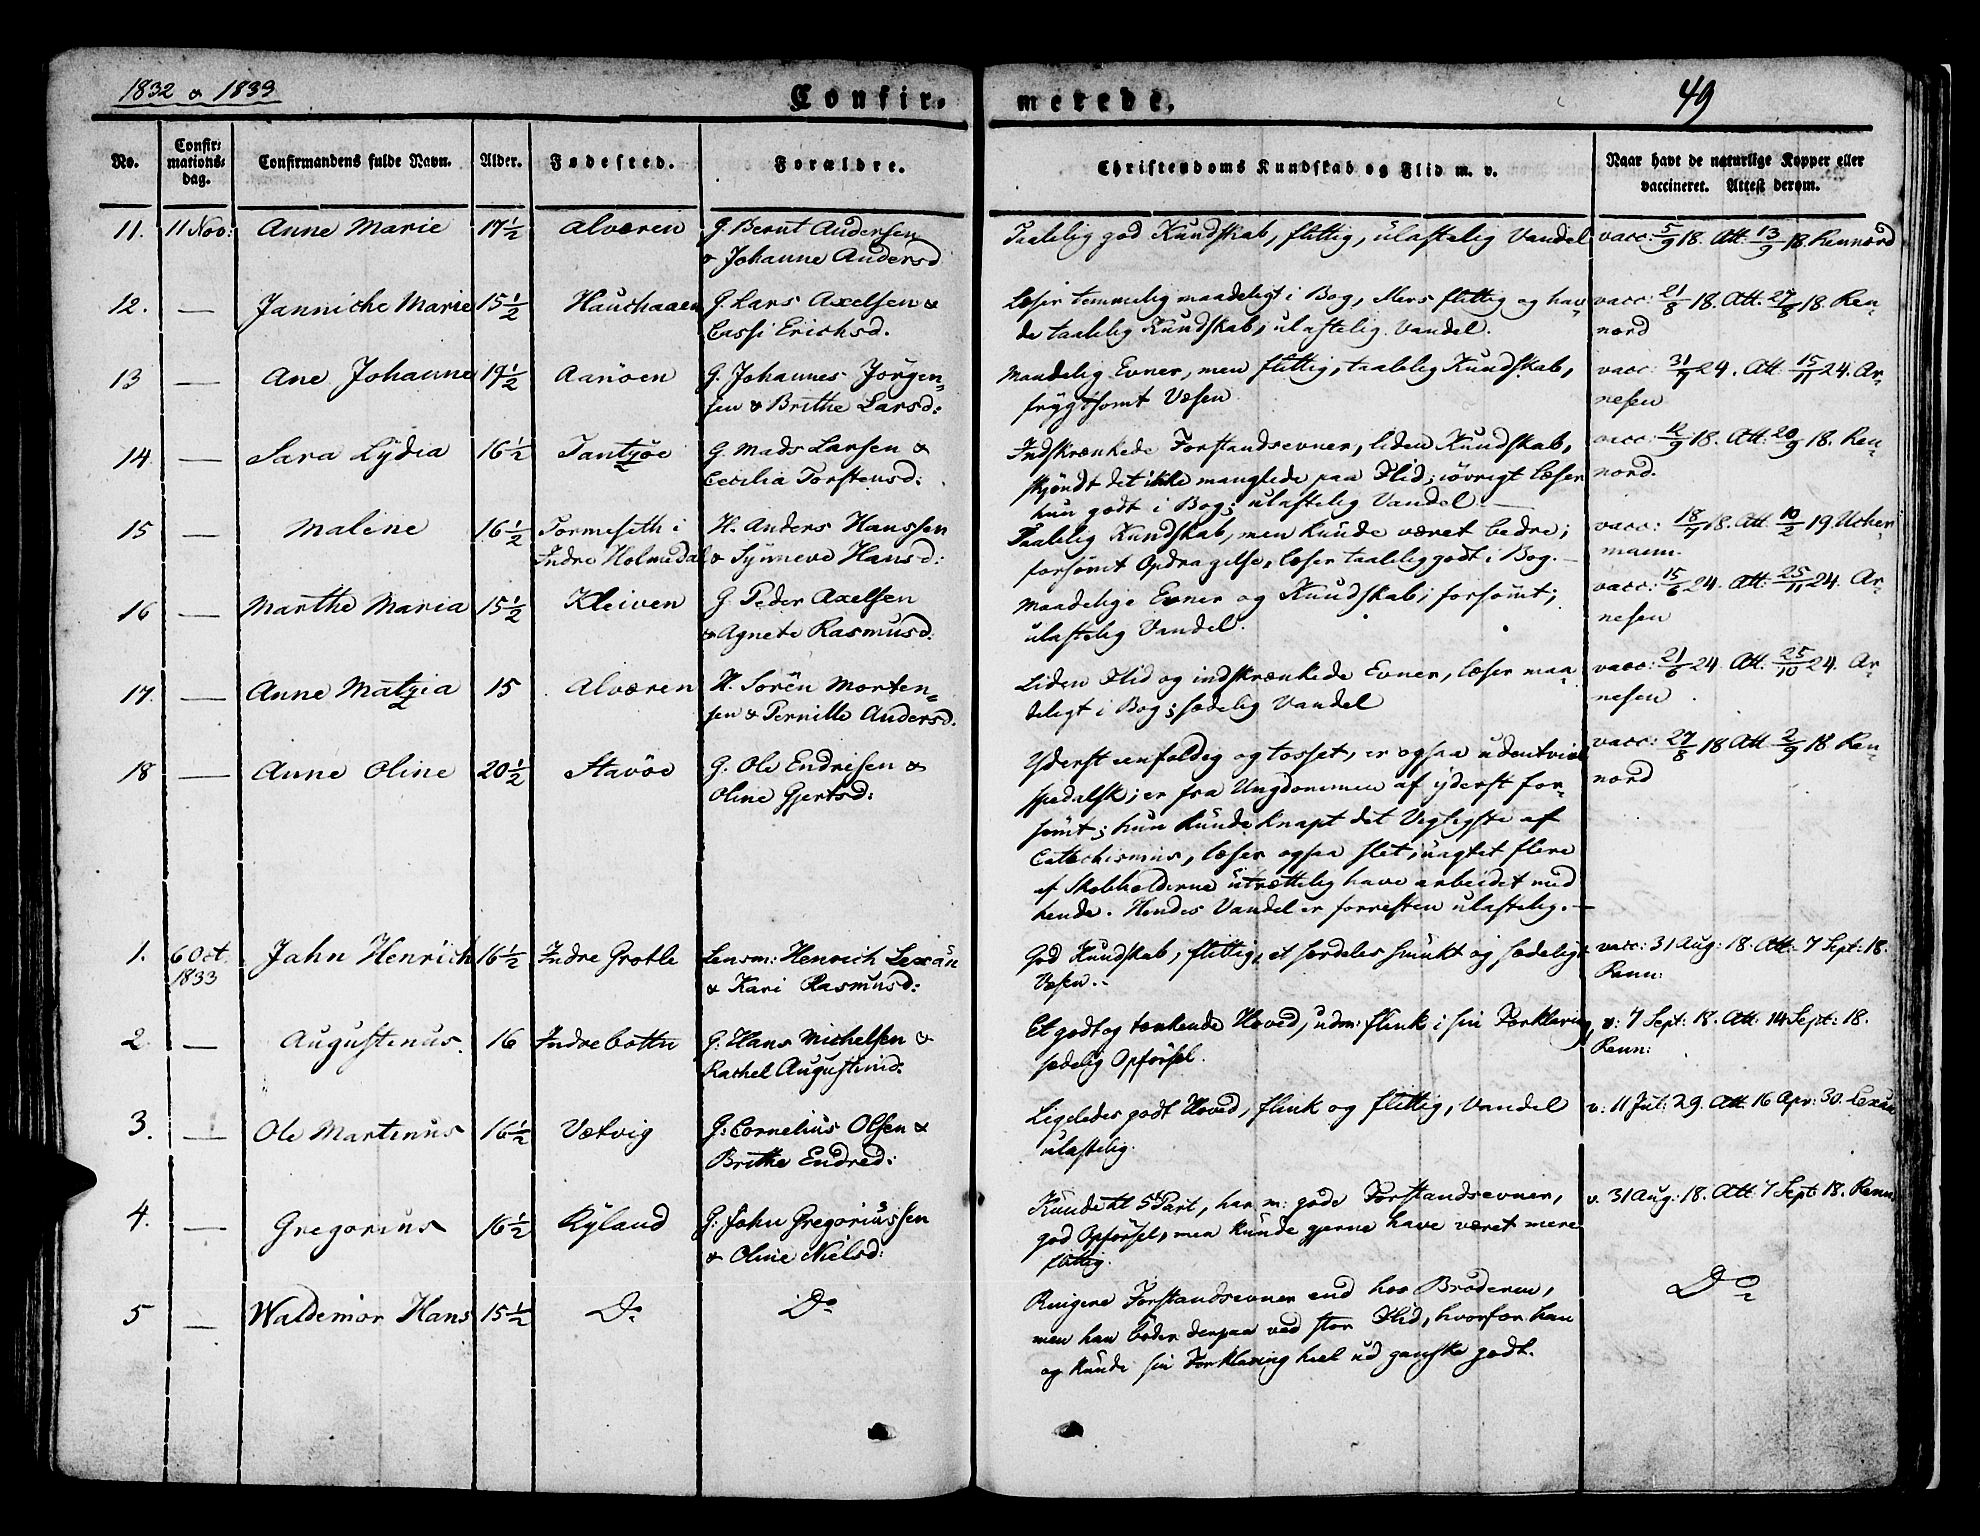 1832 & 1833
Confir-
merede.
49
No.
Confir-
mations-
dag.
Confirmandens fulde Navn.
Alder.
Fødested.
Forældre.
Christendoms Kundskab og Flid m. v.
Naar havt de naturlige Kopper eller
vaccineret. Attest derom.
11. 11 Nov: Anne Marie 17½ Alværen G. Bernt Andersen
& Johanne Andersd
Taalelig god Kundskab, flittig, ulastelig Vandel
vacc: 5/9 18. Att: 13/9 18. Rennord
12. — Jannicke Marie 15½ Hauchaaen G. Lars Axelsen &
Cassi Erichsd.
Læser temmelig maadeligt i Bog, ellers flittig og hav-
de taalelig Kundskab, ulastelig Vandel.
vacc: 21/8 18. Att. 27/8 18. Ren-
nord
13 — Ane Johanne 19½ Aarøen G. Johannes Jørgen-
sen & Brithe Larsd:
Maadelig Evner, men flittig, taalelig Kundskab,
frygtsomt Væsen.
vacc: 31/7 24. Att. 15/11 24. Ar-
nesen
14. — Sara Lydia 16½ Tantøe G. Mads Larsen &
Cecilia Torstensd:
Indskrænkede Forstandsevner, liden Kundskab,
skjøndt det ikke manglede paa Flid; iøvrigt læser
hun godt i Bog; ulastelig Vandel.
vacc: 12/9 18. Att: 20/9 18. Ren-
nord.
15 — Malene 16½ Tormeseth i
Indre Holmedal
H. Anders Hanssen
& Synneve Hansd:
Taalelig Kundskab, men kunde været bedre;
forsømt Opdragelse, læser taalelig godt i Bog. —
vacc: 18/7 18. Att. 10/2 19. Ucher-
mann.
16 — Marthe Maria 15½ Kleiven G. Peder Axelsen
& Agnete Rasmusd:
Maadelige Evner og Kundskab; forsømt;
ulastelig Vandel.
vacc: 15/6 24. Att: 25/11 24. Ar-
nesen
17. — Anne Matzia 15 Alværen H. Sørén Morten-
sen & Pernille Andersd.
Liden Flid og indskrænkede Evner, læser maa-
deligt i Bog; sædelig Vandel
vacc: 21/6 24. Att. 25/10 24. Ar
nesen
18 — Anne Oline 20½ Stavøe G. Ole Endresen &
Oline Gjertsd:
Yderst eenfoldig og tosset, er ogsaa udentvivl
spedalsk; er fra Ungdommen af yderst for-
sømt; hun kunde knapt det Vigtigste af
Catechismus, læser ogsaa slet, uagtet flere
af Skoleholderne utrættelig have arbeidet med
hende. Hendes Vandel er forresten ulastelig. —
vacc: 27/8 18 Att 2/9 18 Ren-
nord
1. 6 Oct. 1833 Jahn Henrich 16½ Indre Grotle Lensm: Henrich Lexau
& Kari Rasmusd:
God Kundskab, flittig, et særdeles smukt og sædeligt
Væsen. -
vacc: 31 Aug: 18. Att. 7 Sept: 18.
Renn:
2 — Augustinus. 16 Indrebotten G: Hans Michelsen &
Rachel Augustinid:
Et godt og tænkende Hoved, udm: flink i sin Forklaring,
sædelig Opførsel.
v: 7 Sept: 18. Att: 14 Sept: 18.
Renn:
3. — Ole Martinus 16½ Vætvig G: Cornelius Olsen &
Brithe Endred:
Ligeledes godt Hoved, flink og flittig, Vandel
ulastelig.
v: 11 Jul: 29. Att 16 Apr: 30. Lexau
4. — Gregorius 16½ Ryland G: John Gregoriussen
& Oline Nielsd:
Kunde til 5t Part, har m: gode Forstandsevner,
god Opførsel, men kunde gjerne have været mere
flittig.
v. 31 Aug: 18. Att: 7 Sept: 18. Renn.
5 — Waldemor Hans 15½ Do Do
Ringere Forstandsevner end hos Broderen,
men han bøder derpaa ved stor Flid, hvorfor han
og kunde sin Forklaring heel ud ganske godt.
Do